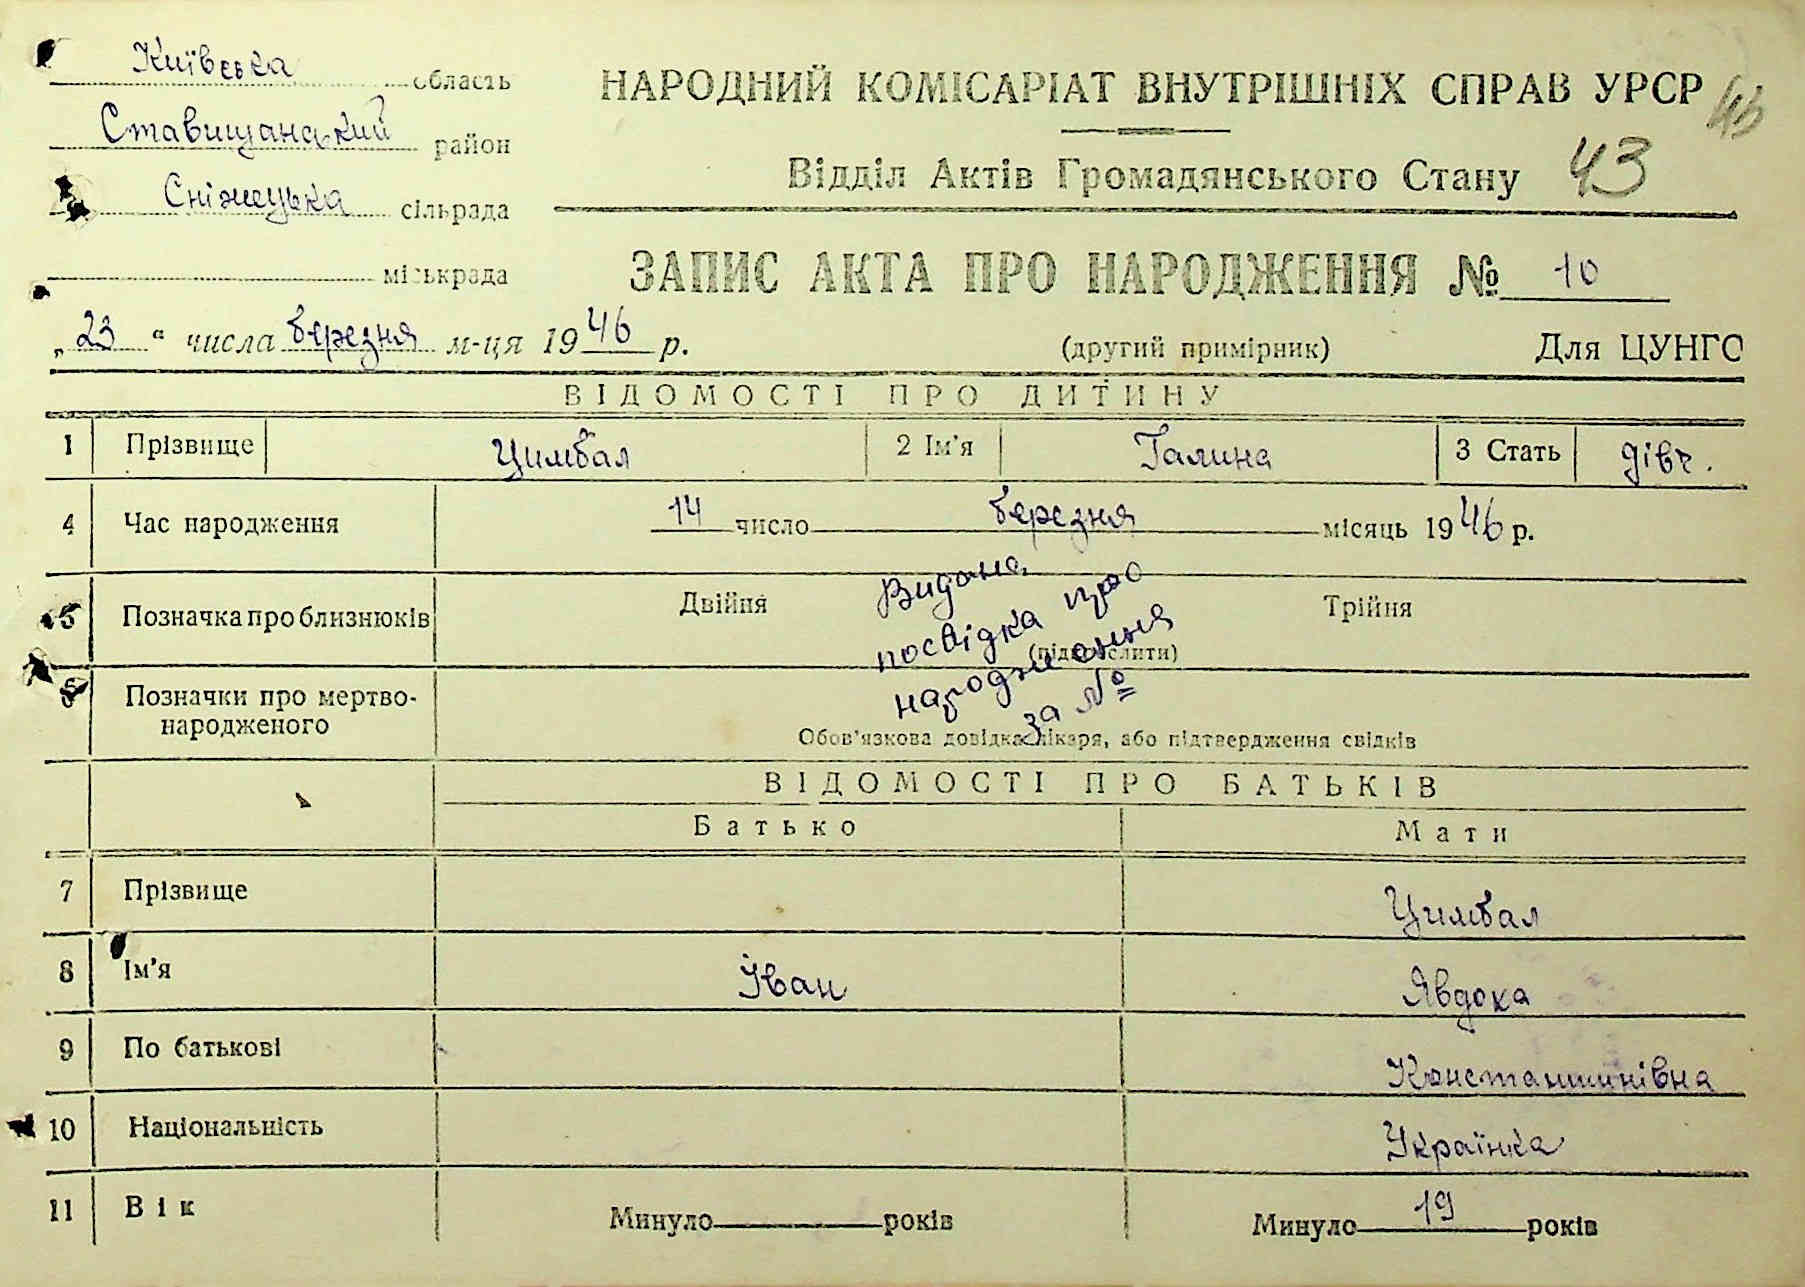 Київська область
Ставищанський район
Сніжецька сільрада
міськрада
НАРОДНИЙ КОМІСАРІАТ ВНУТРІШНІХ СПРАВ УРСР
Відділ Актів Громадянського Стану 43
ЗАПИС АКТА ПРО НАРОДЖЕННЯ № 10
„23“ числа березня м-ця 1946 р.
(другий примірник) Для ЦУНГО
ВІДОМОСТІ ПРО ДИТИНУ
1 Прізвище Цимбал 2 Ім'я Галина 3 Стать дівч.
4 Час народження 14 число березня місяць 1946 р.
5 Позначка про близнюків Двійня Трійня
(підкреслити)
Видана
посвідка про
народження
за №
6 Позначки про мертво-
народженого
Обов'язкова довідка лікаря, або підтвердження свідків
ВІДОМОСТІ ПРО БАТЬКІВ
Батько Мати
7 Прізвище Цимбал
8 Ім'я Іван Явдока
9 По батькові Константинівна
10 Національність Українка
11 Вік Минуло років Минуло 19 років